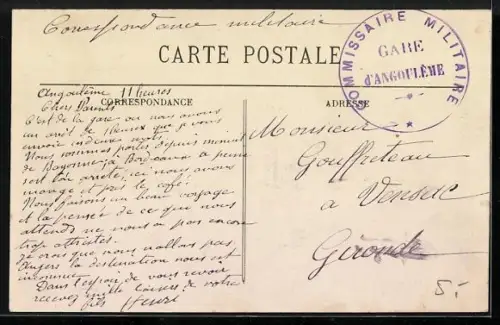 Correspondance militaire
CARTE POSTALE
COMMISSAIRE MILITAIRE
GARE
d'ANGOULÊME
CORRESPONDANCE
ADRESSE
Angoulême 11 heures
Chers Parents
C'est de la gare ou nous avons
un arrêt de heures que je vous
envoie
Nous sommes partis depuis
de Bayonne, a Bordeaux a peine
arrêtés, ici nous avons
mangé et pris le café.
Nous faisons un beau voyage
et la pensée de ce que nous
attends ne nous a pas encore
trop attristés.
Je crois que nous allons pas
la destination nous est
inconnue
Dans l'espoir de vous revoir
recevez mille baisers de votre
fils Henri
Monsieur
Gouffreteau
a Vensac
Gironde
5.-